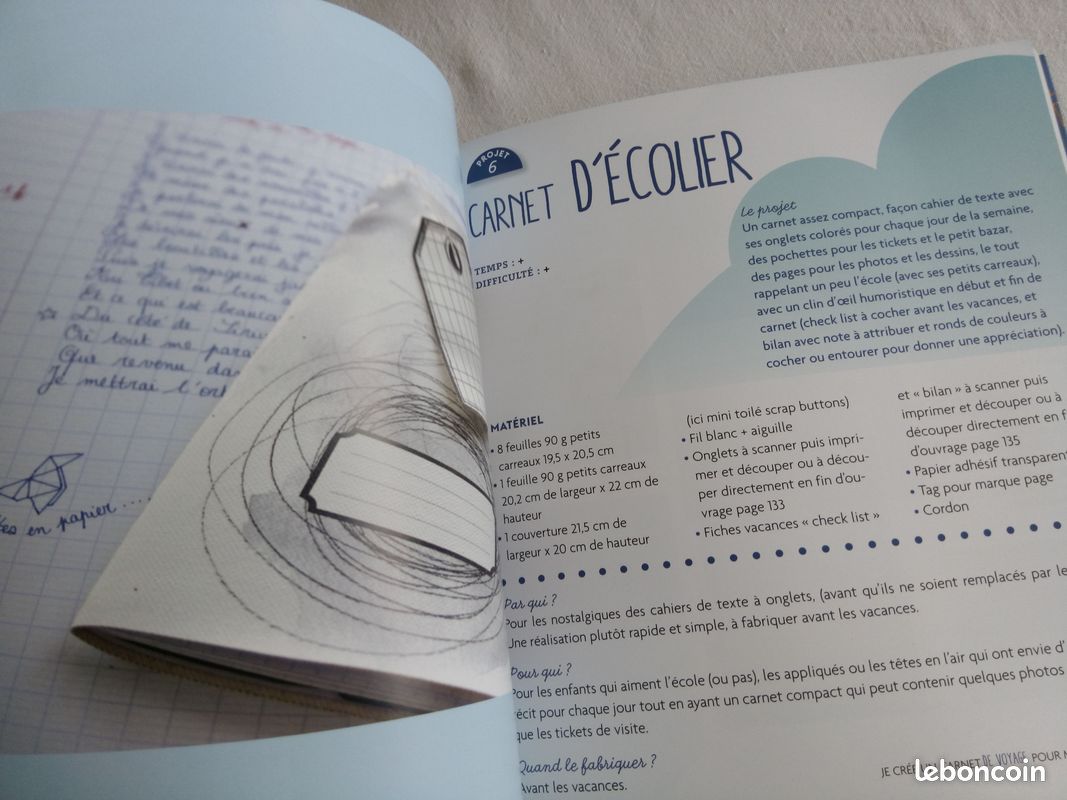 Du côté de
Où tout me
Que revenu
Je mettrai l'
en papier ....
PROJET
6
CARNET D'ÉCOLIER
TEMPS : +
DIFFICULTÉ : +
Le projet
Un carnet assez compact, façon cahier de texte avec
ses onglets colorés pour chaque jour de la semaine,
des pochettes pour les tickets et le petit bazar,
des pages pour les photos et les dessins, le tout
rappelant un peu l'école (avec ses petits carreaux),
avec un clin d'œil humoristique en début et fin de
carnet (check list à cocher avant les vacances, et
bilan avec note à attribuer et ronds de couleurs à
cocher ou entourer pour donner une appréciation).
MATÉRIEL
• 8 feuilles 90 g petits
carreaux 19,5 x 20,5 cm
• 1 feuille 90 g petits carreaux
20,2 cm de largeur x 22 cm de
hauteur
• 1 couverture 21,5 cm de
largeur x 20 cm de hauteur
(ici mini toilé scrap buttons)
• Fil blanc + aiguille
• Onglets à scanner puis impri-
mer et découper ou à décou-
per directement en fin d'ou-
vrage page 133
• Fiches vacances « check list »
et « bilan » à scanner puis
imprimer et découper ou à
découper directement en f
d'ouvrage page 135
• Papier adhésif transparent
• Tag pour marque page
• Cordon
Par qui ?
Pour les nostalgiques des cahiers de texte à onglets, (avant qu'ils ne soient remplacés par le
Une réalisation plutôt rapide et simple, à fabriquer avant les vacances.
Pour qui ?
Pour les enfants qui aiment l'école (ou pas), les appliqués ou les têtes en l'air qui ont envie d'
récit pour chaque jour tout en ayant un carnet compact qui peut contenir quelques photos
que les tickets de visite.
Quand le fabriquer ?
Avant les vacances.
JE CRÉE UN CARNET DE VOYAGE POUR M
leboncoin